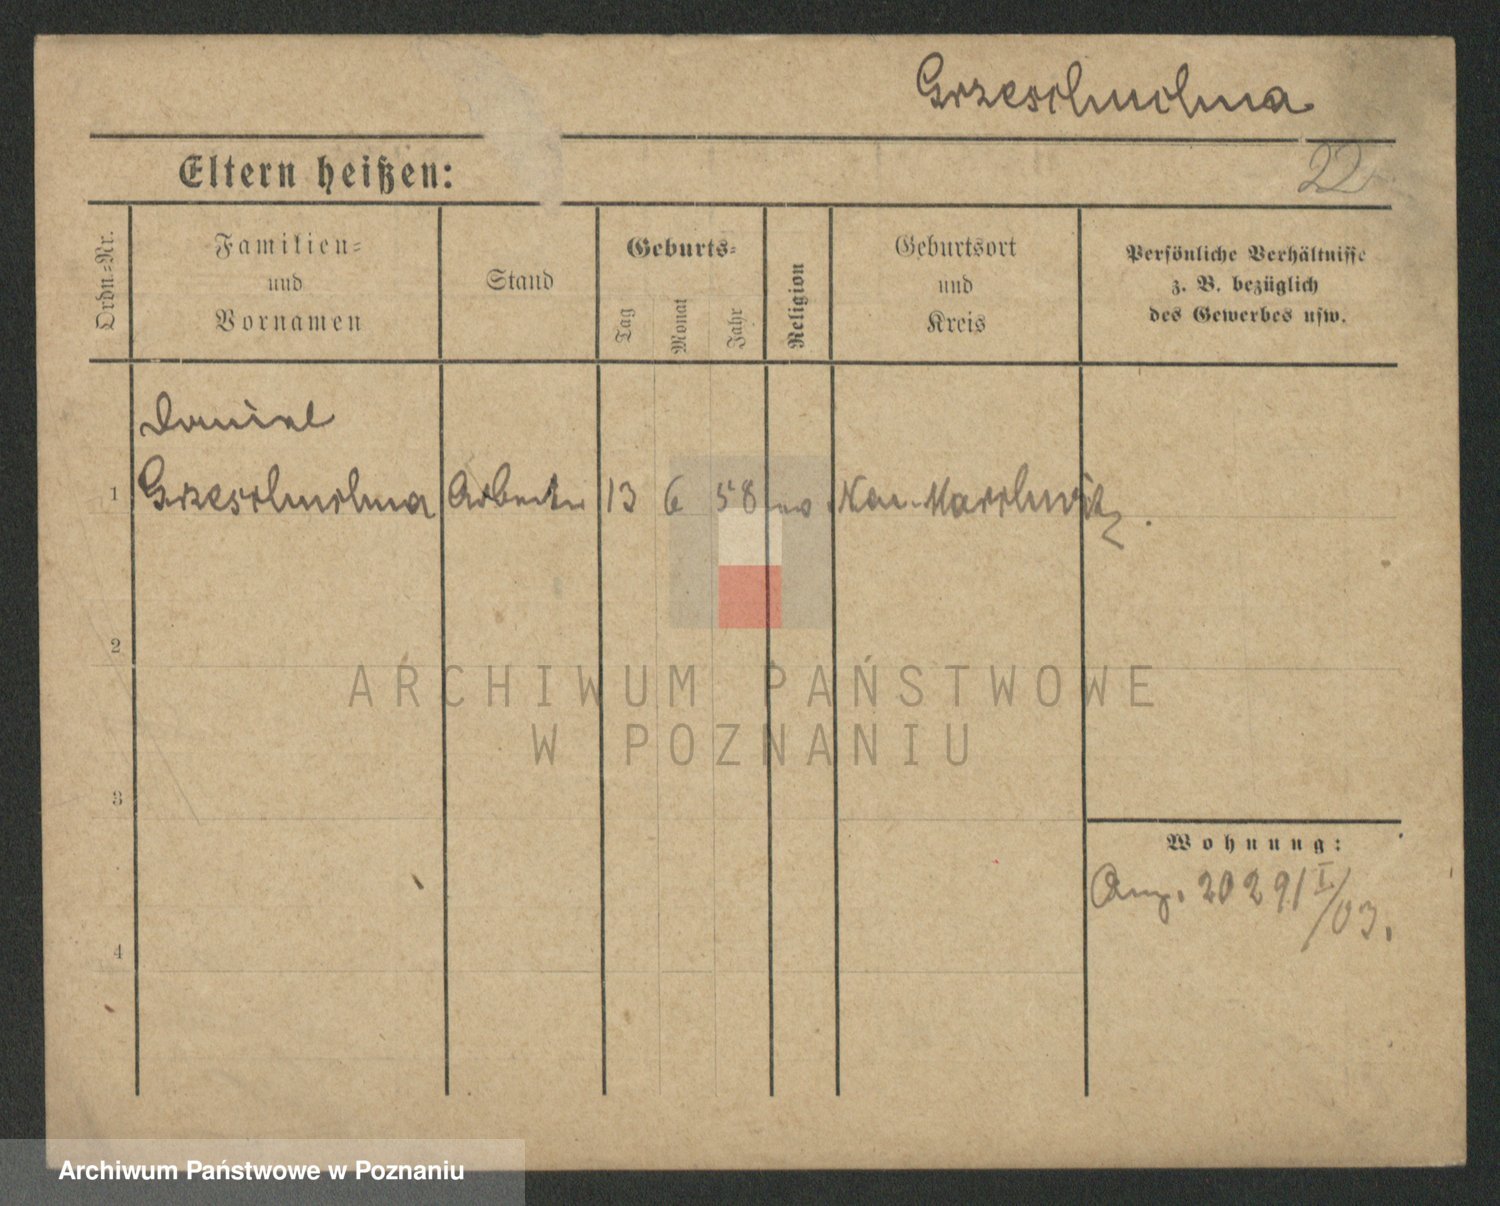 Grzeschuchna
22
Eltern heißen:
Ordn=Nr.
Familien=
und
Vornamen
Stand
Geburts=
Tag
Monat
Jahr
Religion
Geburtsort
und
Kreis
Persönliche Verhältnisse
z. B. bezüglich
des Gewerbes usw.
Daniel
1 Grzeschuchna Arbeiter 13 6 58 ev
2
3
4
Wohnung:
Anz. 20291 I/03.
ARCHIWUM PAŃSTWOWE
W POZNANIU
Archiwum Państwowe w Poznaniu